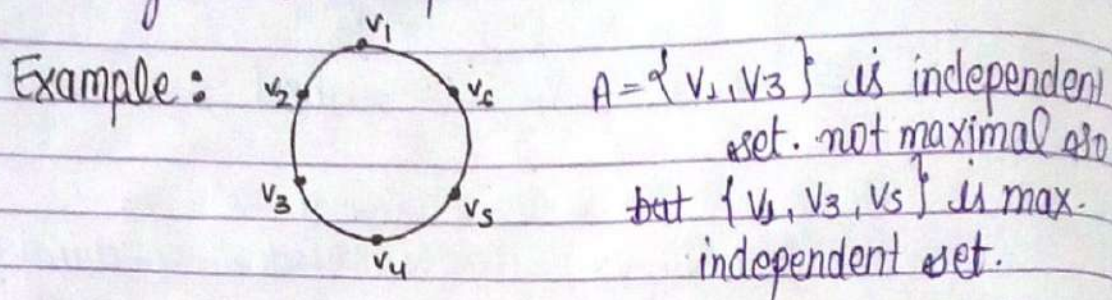 Example :
v1
v2
v6
v3
v5
v4
A = { v1, v3 } is independent
set. not maximal
but { v1, v3, v5 } is max.
independent set.